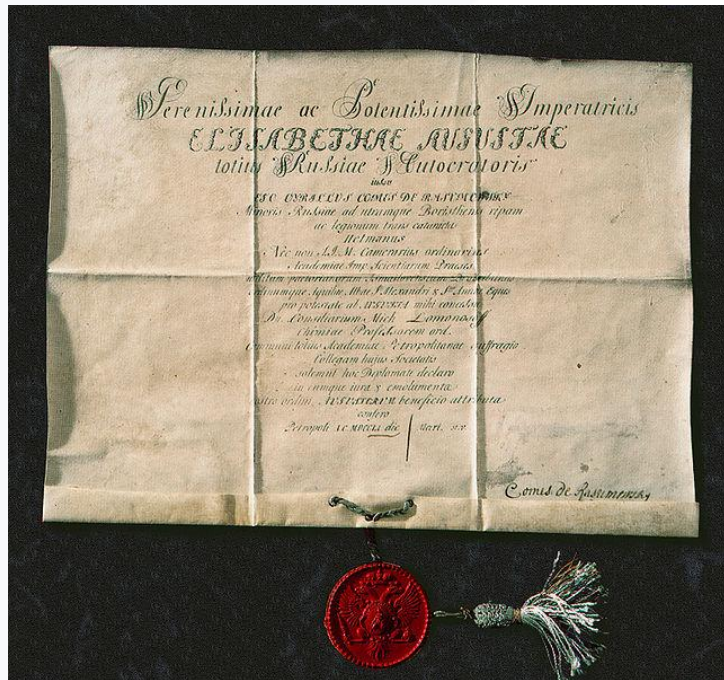 Serenissimae ac Potentissimae Imperatricis
ELISABETHAE AUGUSTAE
totius Russiae Autocratoris
iussu
EGO CYRILLUS COMES DE RASUMOWSKY
Minoris Russiae ad utramque Boristhenis ripam
ac legionum trans cataractas
Hetmanus
Nec non S.I.M. Camerarius ordinarius
Academiae Imp. Scientiarum Praeses
Ordinumque Aquilae Albae S. Alexandri & Stae Annae Eques
pro potestate ab AUGUSTA mihi concessa
Dn. Consiliarium Mich. Lomonosoff
Chimiae Professorem ord.
Communi totius Academiae Petropolitanae suffragio
Collegam hujus Societatis
solemni hoc Diplomate declaro
iura & emolumenta
ordini, beneficio attributa
confero
Petropoli MDCCLI die Mart.
Comes de Rasumowsky